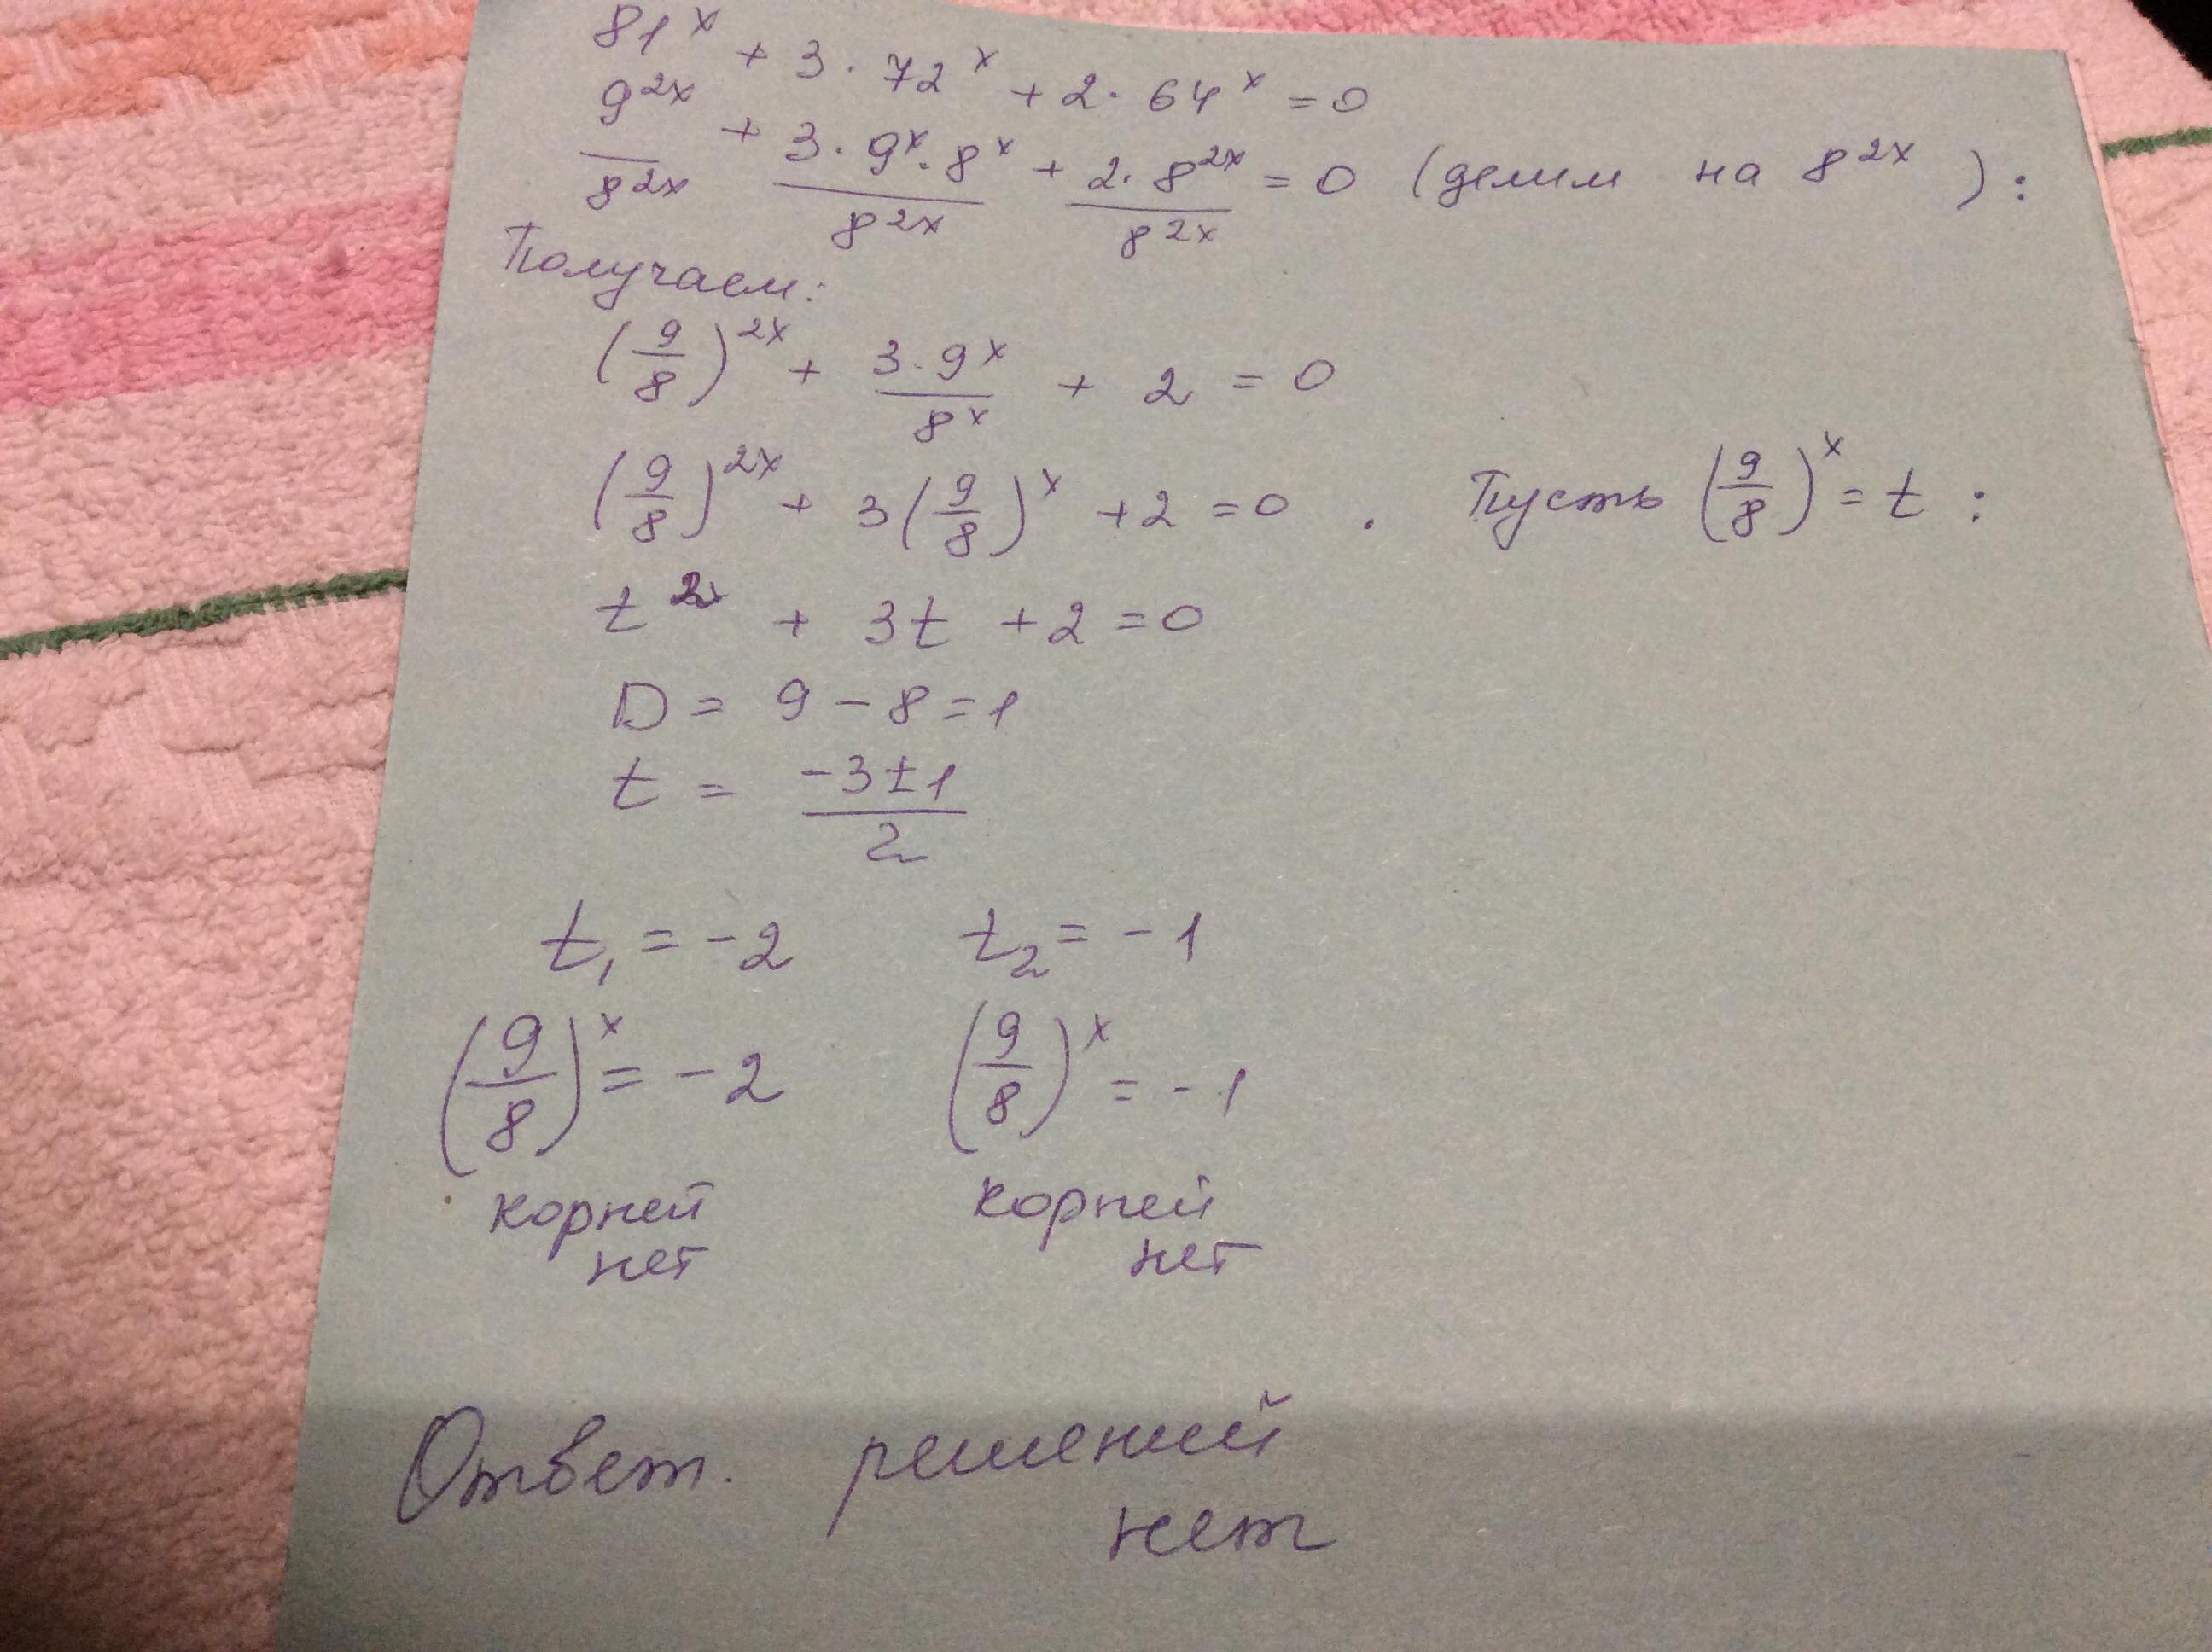 81^x + 3 · 72^x + 2 · 64^x = 0
9^2x/8^2x + 3 · 9^x · 8^x/8^2x + 2 · 8^2x/8^2x = 0 (делим на 8^2x):
Получаем:
(9/8)^2x + 3 · 9^x/8^x + 2 = 0
(9/8)^2x + 3(9/8)^x + 2 = 0 . Пусть (9/8)^x = t :
t^2 + 3t + 2 = 0
D = 9 - 8 = 1
t = -3 ± 1/2
t₁ = -2 t₂ = -1
(9/8)^x = -2 (9/8)^x = -1
корней корней
нет нет
Ответ. решений
нет